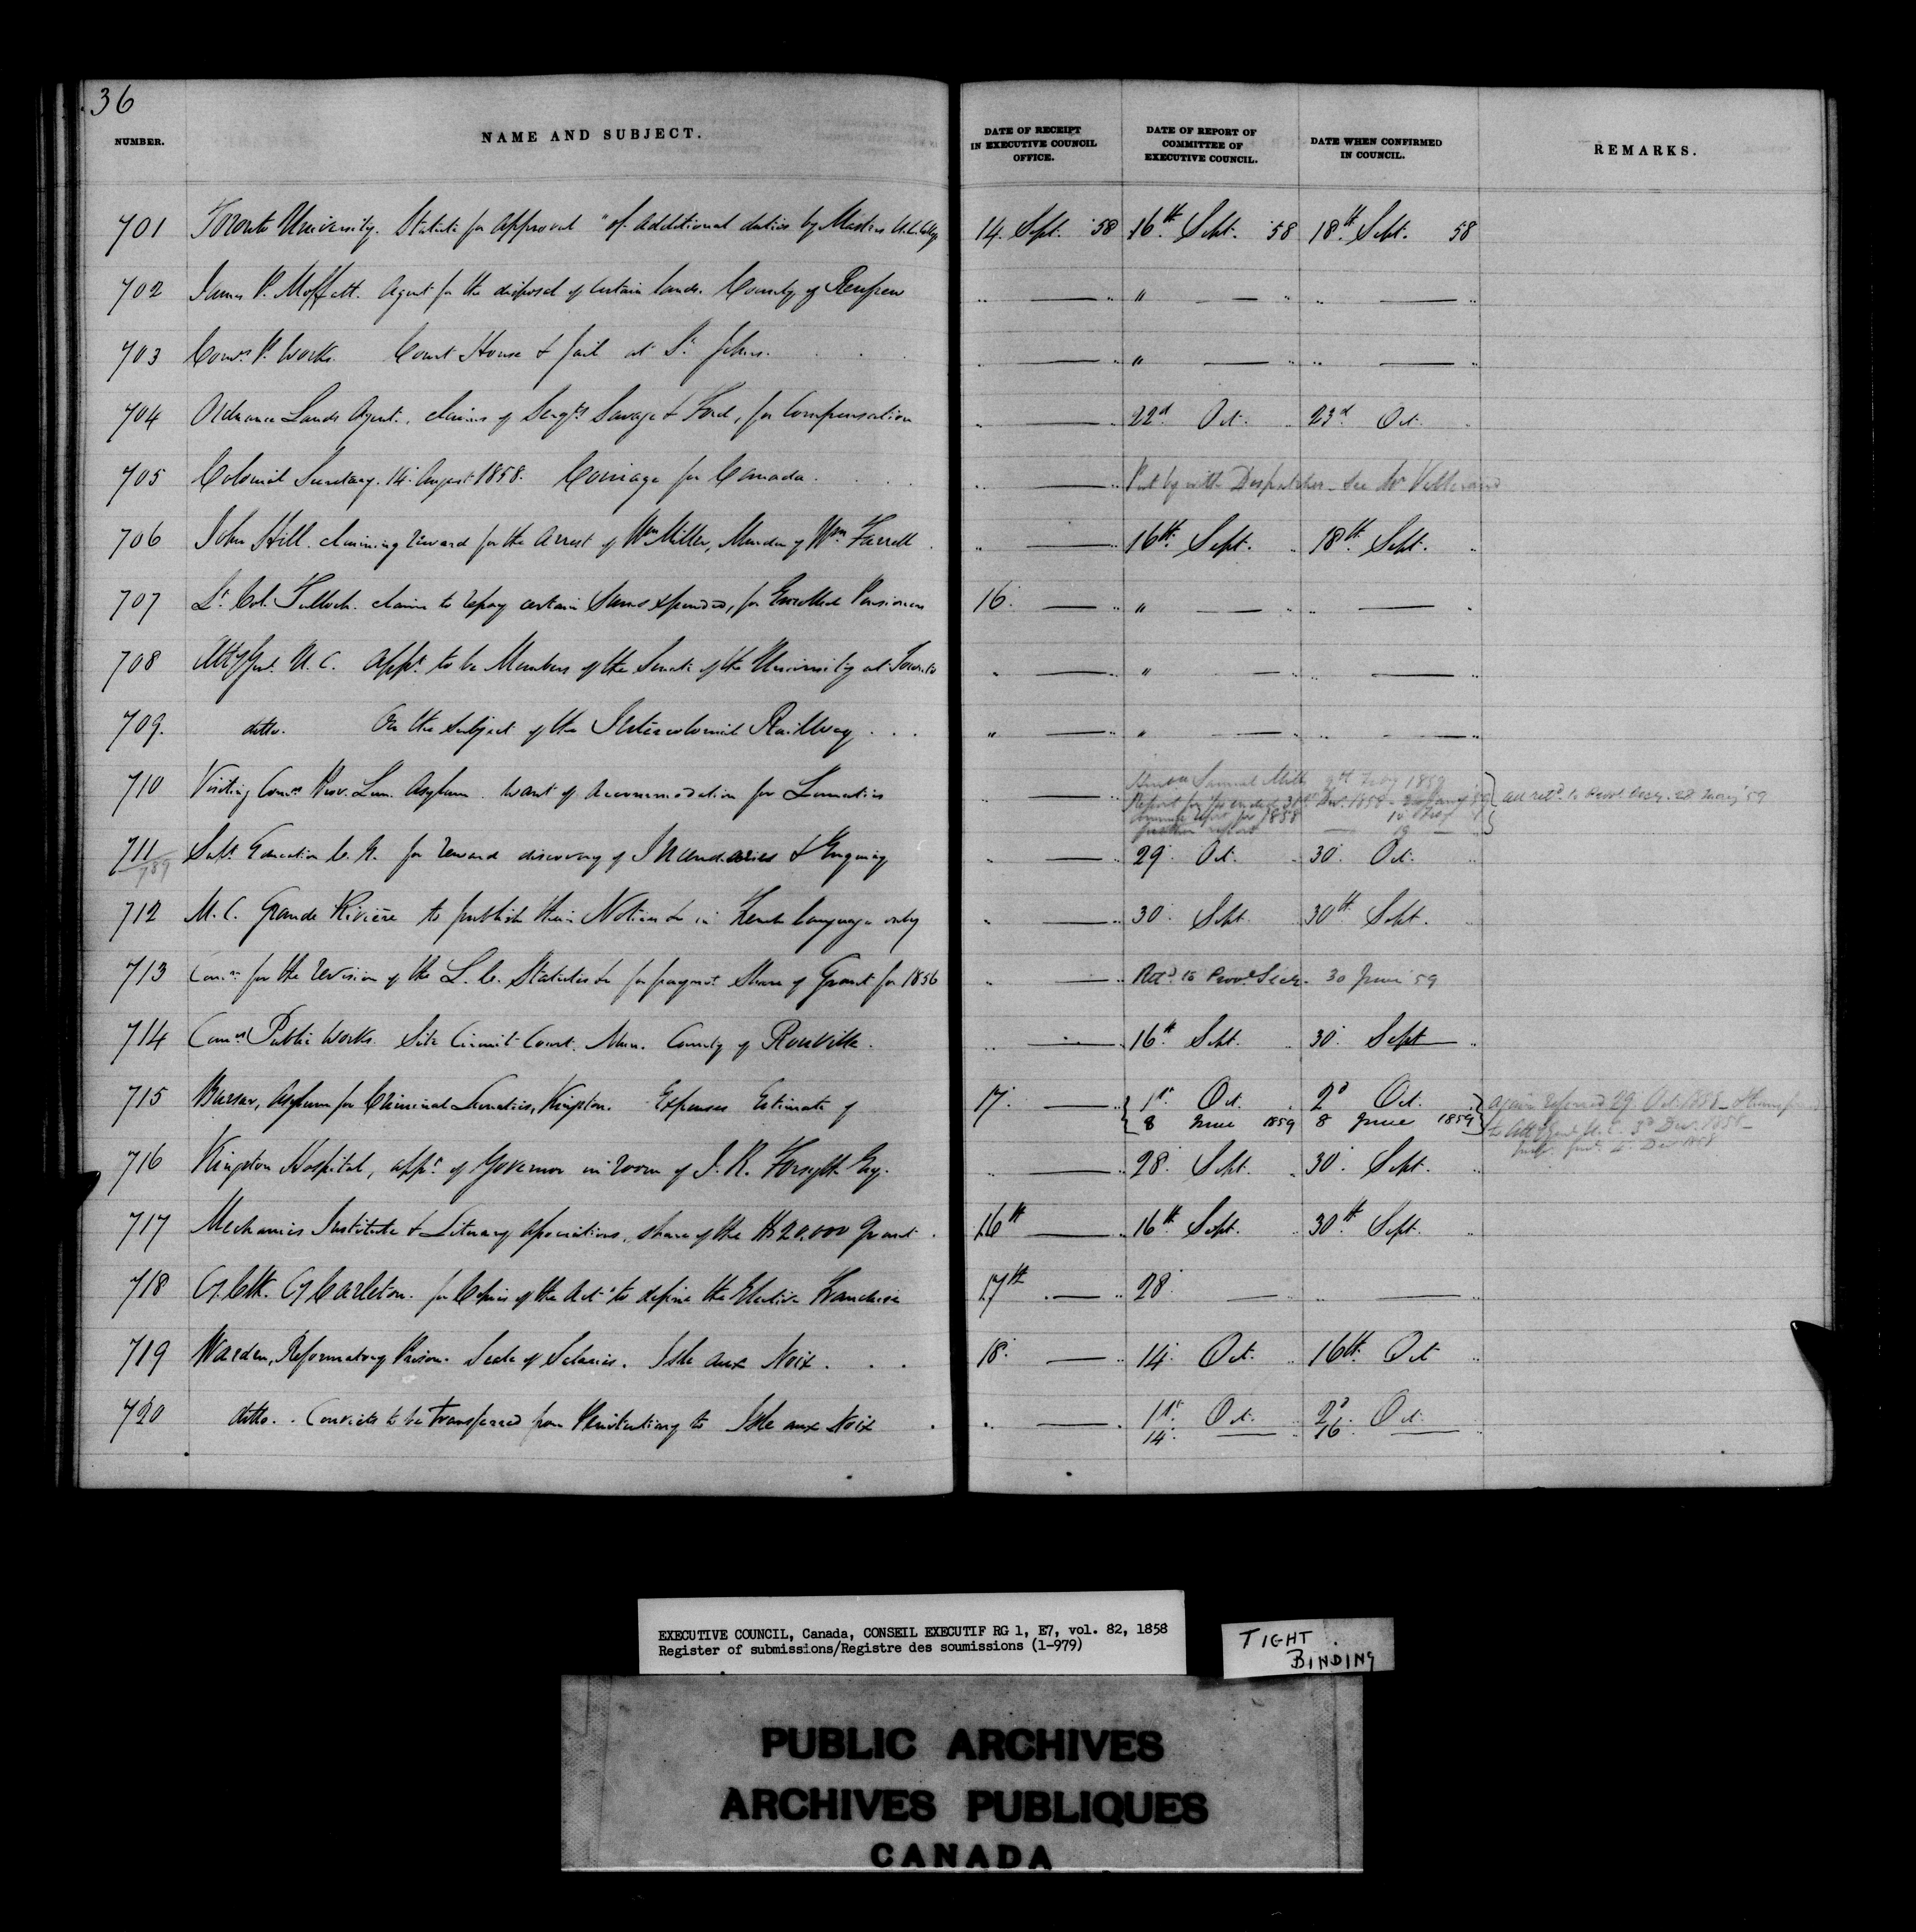 36
NUMBER. NAME AND SUBJECT. DATE OF RECEIPT IN EXECUTIVE COUNCIL OFFICE. DATE OF REPORT OF COMMITTEE OF EXECUTIVE COUNCIL. DATE WHEN CONFIRMED IN COUNCIL. REMARKS.
701 Toronto University. Statute for approval "of additional duties by Masters U.C. College 14. Sept. '58 16th Sept. '58 18th Sept. 58
702 James P. Moffatt. Agent for the disposal of certain lands. County of Renfrew " — " " — " " — "
703 Comrs. P. Works. Court House & Jail at St. Johns. " — " " — " " — "
704 Ordnance Lands Agent. claims of Sergts Savage & Ford, for Compensation " — " 22d Oct. " 23d Oct. "
705 Colonial Secretary. 14. August 1858. Coinage for Canada. " — " Put by with Despatches - See Mr
706 John Hill. claiming reward for the arrest of Wm Miller, Murder of Wm Farrell " — " 16th Sept. " 18th Sept. "
707 Lt. Col. Tulloch. claim to repay certain sums expended, for Enrolled Pensioners 16. — " " — " " — "
708 Atty Genl. U.C. Appt. to be Members of the Senate of the University at Toronto " — " " — " " — "
709. ditto. On the subject of the Intercolonial Railway " — " " — " " — "
710 Visiting Comrs Prov. Lun. Asylum. Want of Accommodation for Lunatics " — "
Samuel Mills 9th Feby 1859
Report for ended 31st Dec. 1858
annual report for 1858
further report
all retd. to Provl. Secy. 28 May '59
711 Supt. Education C.E. for reward discovery of Incendiaries & Enquiry " — " 29. Oct. " 30. Oct. "
789
712 M.C. Grande Rivière to publish their Notices &c in French language only " — " 30. Sept. 30th Sept. "
713 Comrs for the revision of the L.C. Statutes &c for paymt. Share of Grant for 1856 " — " Retd. to Provl. Secy. 30 June '59
714 Comrs Public Works. Site Circuit Court. Mun. County of Rouville. " — " 16th Sept. " 30. Sept — "
715 Bursar, Asylum for Criminal Lunatics, Kingston. Expenses Estimate of 17. — " 1st. Oct. " 2d Oct. " again referred 29. Oct. 1858
8 June 1859 8 June 1859 to Atty Genl U.C. 3d Dec. 1858
716 Kingston Hospital, appt. of Governor in room of J. R. Forsyth Esq. " — " 28. Sept. " 30. Sept. "
4. Dec 1858
717 Mechanics Institute & Literary Associations, share of the $20,000 Grant. 16th — " 16th Sept. " 30th Sept. "
718 Cy. Clk. Cy Carleton. for Copies of the Act "to define the Elective Franchise 17th — " 28. — " " — "
719 Warden, Reformatory Prison. Scale of Salaries. Isle aux Noix. 18. — " 14. Oct. " 16th Oct "
720 ditto. Convicts to be transferred from Penitentiary to Isle aux Noix " — " 1st. Oct. " 2d. Oct. "
14. — " 16. — "
EXECUTIVE COUNCIL, Canada, CONSEIL EXECUTIF RG 1, E7, vol. 82, 1858
Register of submissions/Registre des soumissions (1-979)
TIGHT
BINDING
PUBLIC ARCHIVES
ARCHIVES PUBLIQUES
CANADA